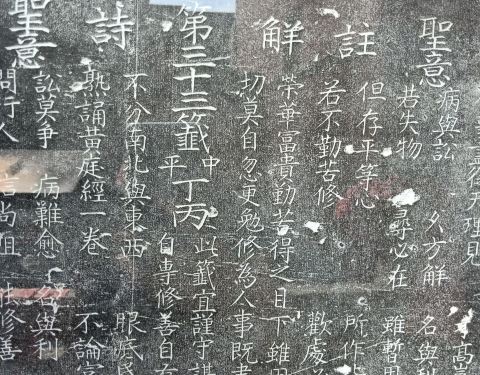 理見
高
聖意
病與訟 久方解 名與利
若失物 尋必在 雖暫
註
但存平等心 所作
若不勤苦修 歡處
解
榮華富貴勤苦得之目下雖
切莫自忽更勉修為人事既
第三十三籤 中平 丁丙
此籤宜謹守謀
自專修善自
詩
不分南北與東西 眼底
熟誦黃庭經一卷 不論
聖意
訟莫爭 病難愈 名與利
問行人 信尚阻 修善